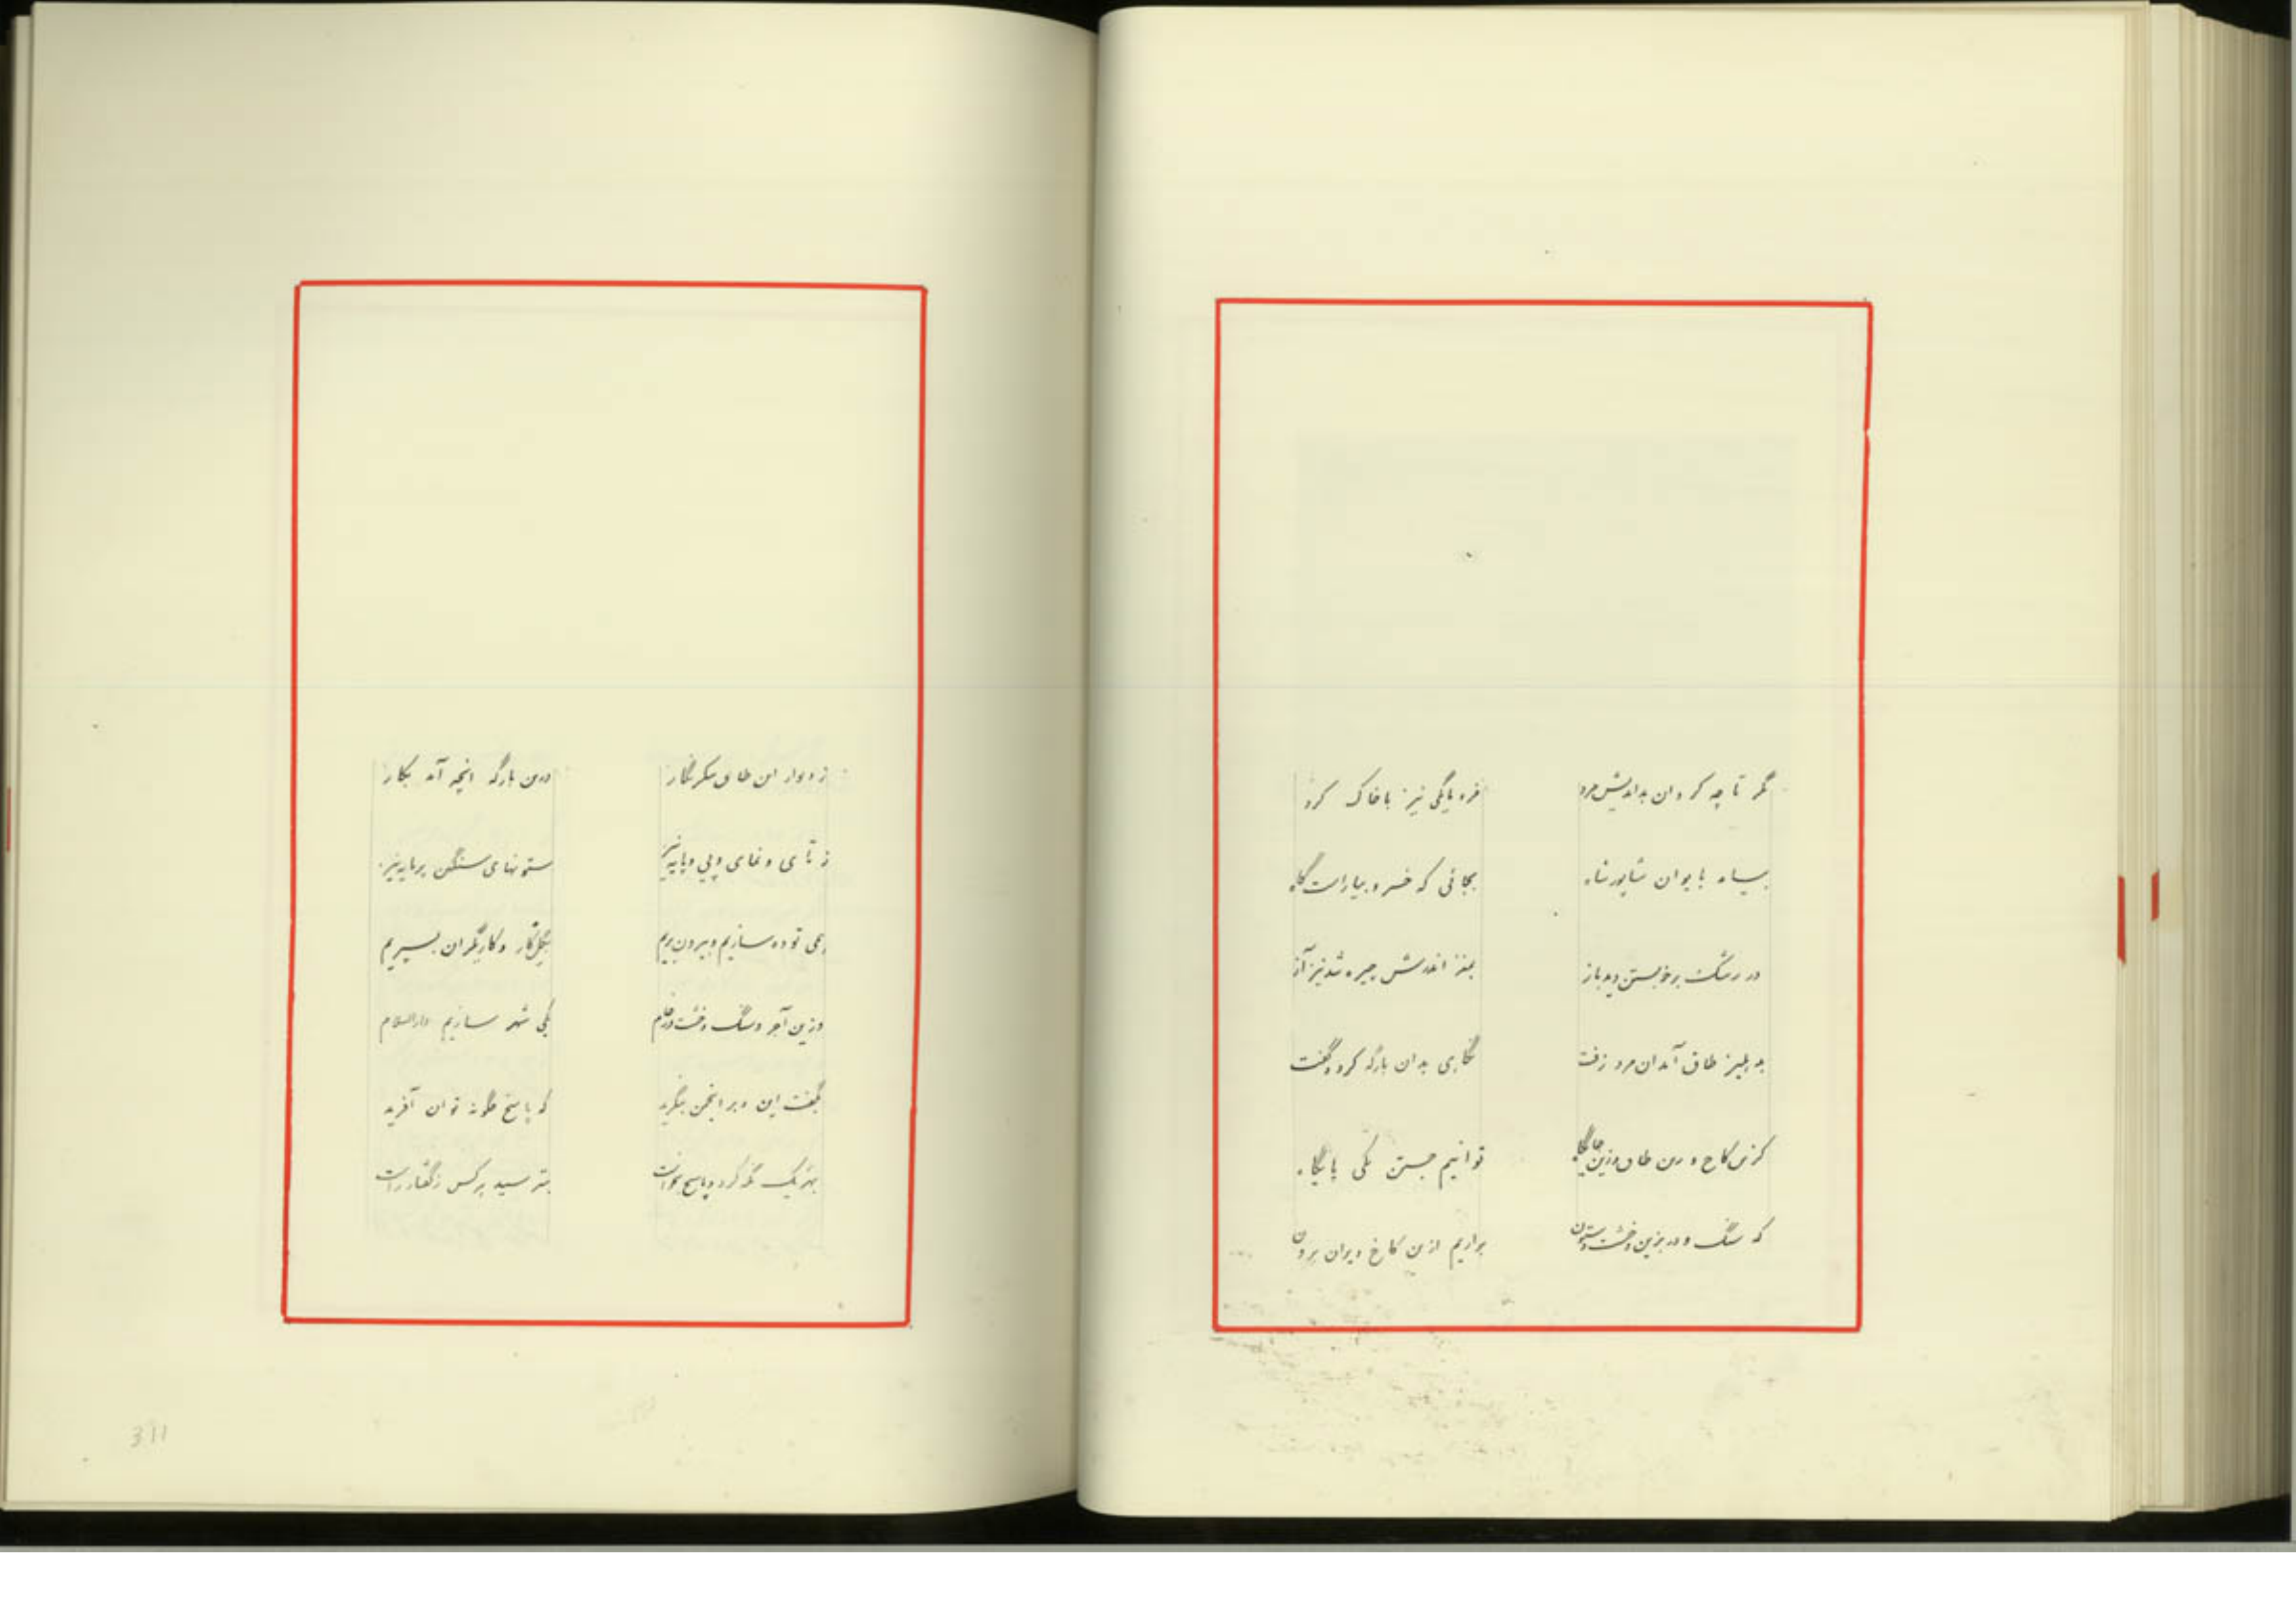 نگر تا چه کرد ان بداندیش مرد
فرومایگی نیز با خاک کرد
بیامد بایوان شاپور شاه
بجائی که خسرو بیاراست گاه
در رشک بر خویشتن دید باز
بمغز اندرش چیره شد نیز آز
بدهلیز طاق آمد ان مرد زفت
نگاهی بدان بارگه کرد و گفت
کزین کاخ و زین طاق وزین جایگاه
توانیم جستن یکی پایگاه
که سنگ و در زین وخشت وستون
براریم ازین کاخ دیوان برون
ز دیوار این طاق نگار
درین بارگه انچه آمد بکار
ز تای و نمای و پی و پایه نیز
ستونهای سنگین پرمایه نیز
همی توده سازیم و بیرون بریم
بگل کار و کاریگران بسپریم
وزین آجر و سنگ وخشت ورخام
یکی شهر سازیم دارالسلام
بگفت این و بر انجمن بنگرید
که پاسخ چگونه توان آفرید
بهر یک نگه کرد و پاسخ بخواست
بترسید هر کس ز گفتار راست
311